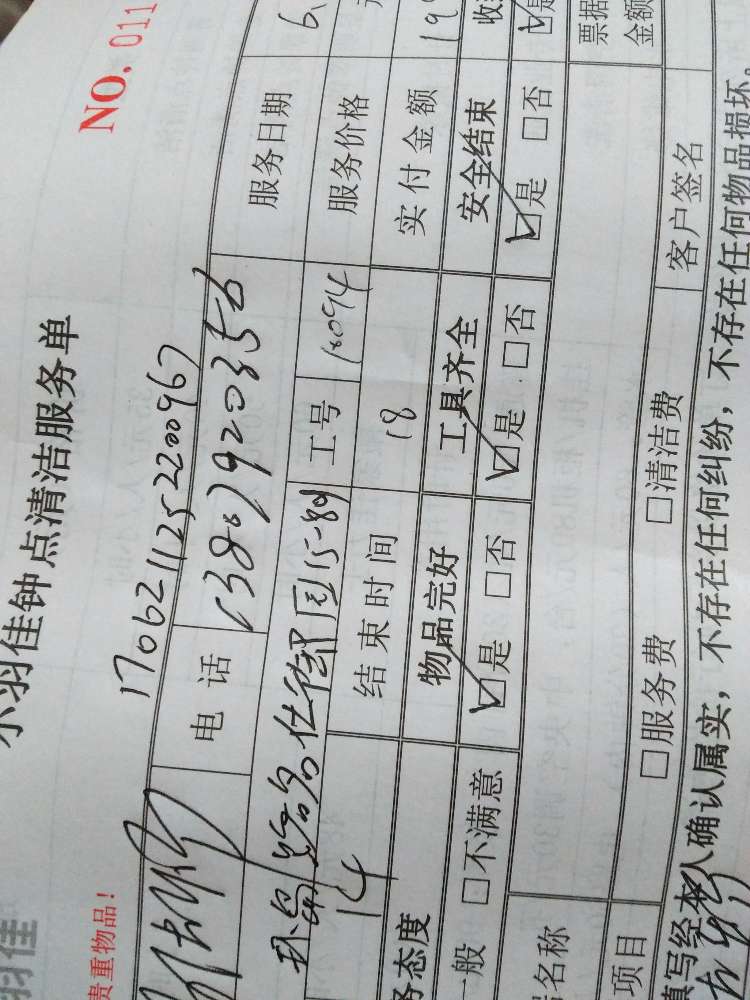 羽佳
小羽佳钟点清洁服务单
NO. 011
贵重物品!
17062112522200967
电 话 13807920356 服务日期 6.
15-89 工号 10094 服务价格
14 结束时间 18 实付金额 19
务态度 物品完好 工具齐全 安全结束 收
一般 □不满意 ☑是 □否 ☑是 □否 ☑是 □否 ☑是
名称 票据
金额
项目 □服务费 □清洁费 客户签名
填写经本人确认属实，不存在任何纠纷，不存在任何物品损坏。